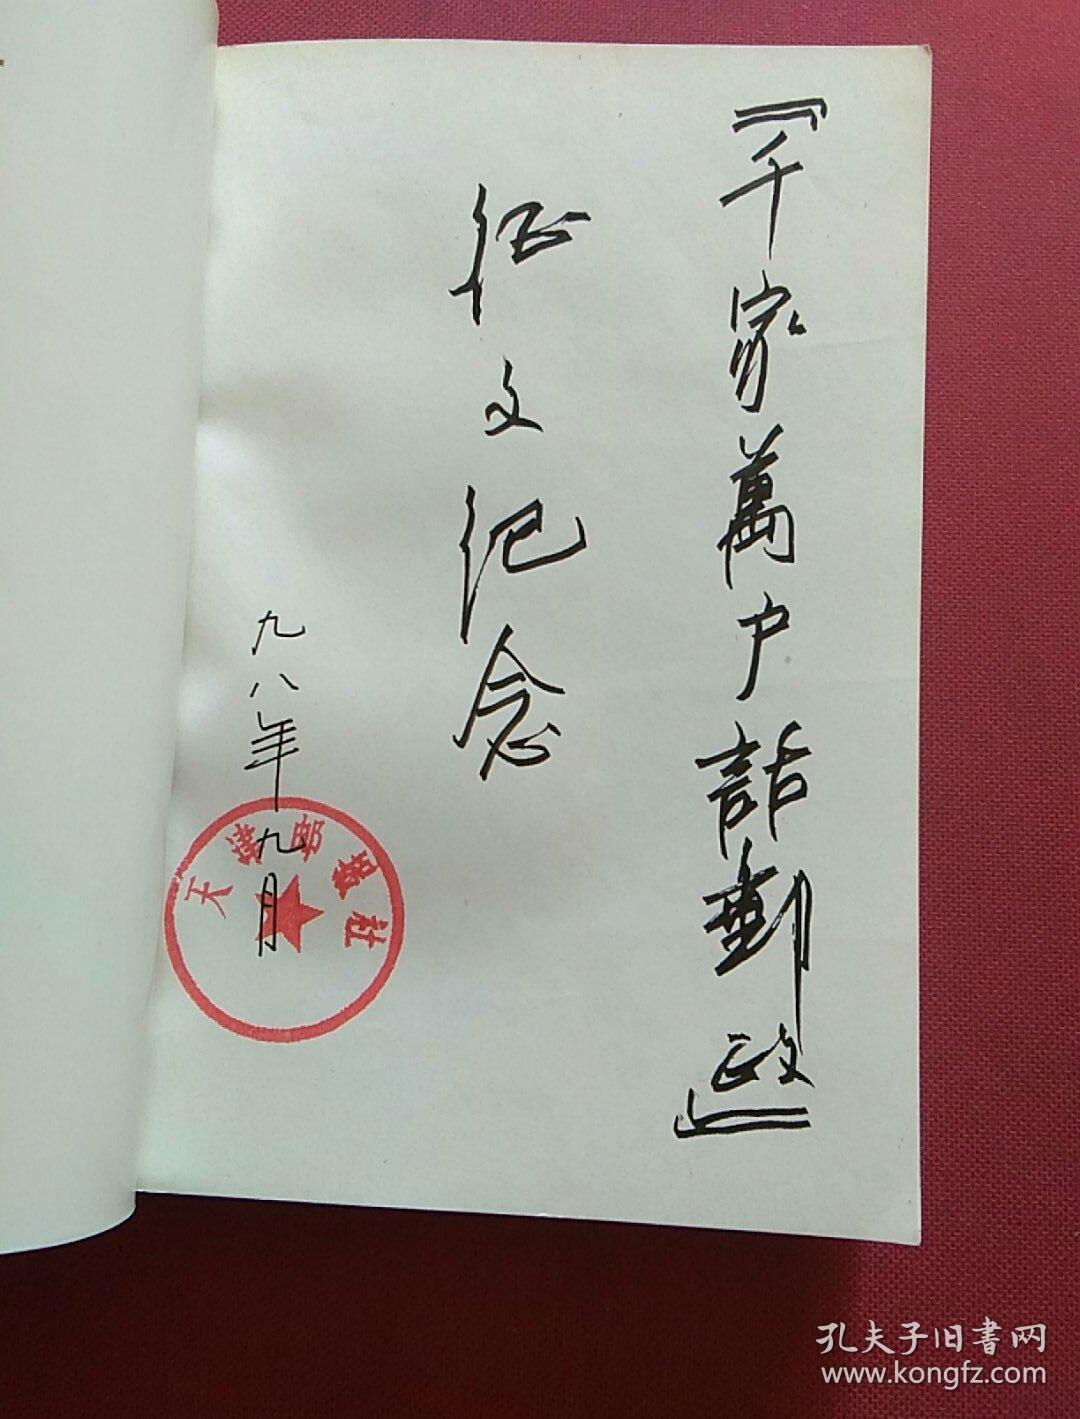 『千家萬户話郵政』
征文纪念
九八年九月
天津邮报社
孔夫子旧书网
www.kongfz.com